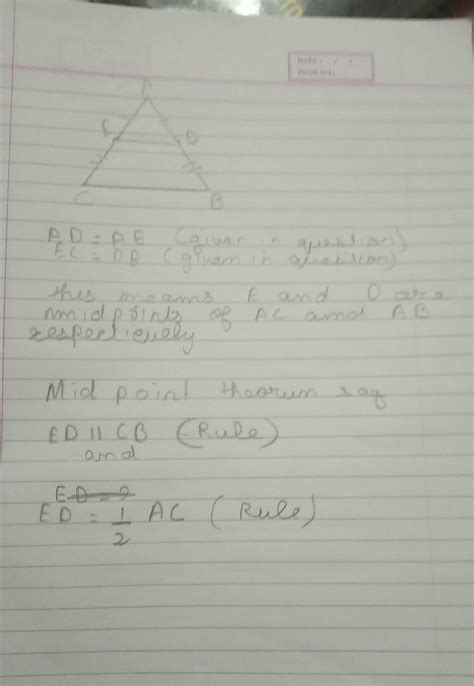 DATE: / /
PAGE NO.:
A
E D
C B
AD = AE (given in question)
EC = DB (given in question)
this means E and D are
midpoints of AC and AB
respectively
Mid point theorum say
ED || CB (Rule)
and
ED = 2
ED = 1/2 AC (Rule)